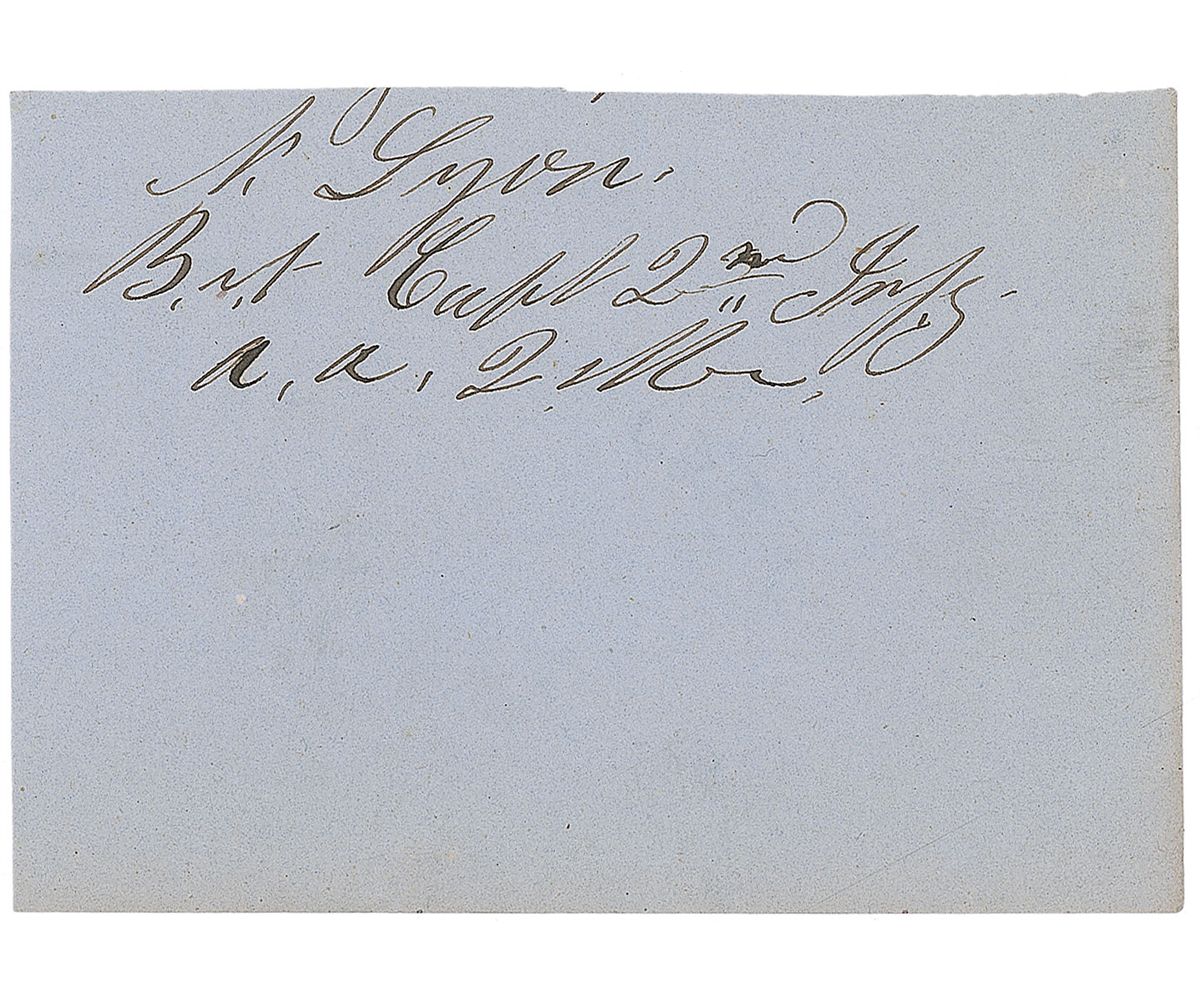 N. Lyon.
Bvt Capt 2nd Infy.
A. A. Q. Mr.